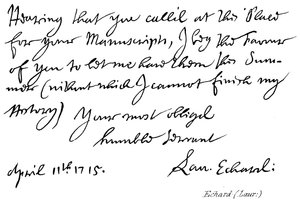 Hearing that you call'd at this Place
for your Manuscripts, I beg the Favour
of you to let me have them this Sum-
mer (without which I cannot finish my
History) Your most obliged
humble servant
April 11th 1715.
Lau. Echard:
Echard (Laur:)